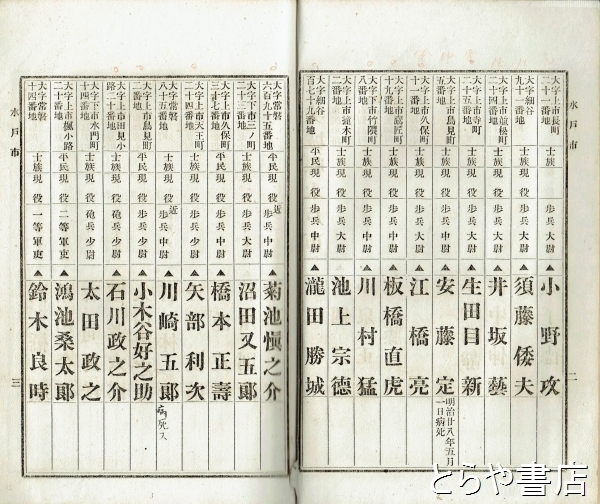 水戸市
二
士族 現役 歩兵少尉 ▲小野攻
大字細谷 士族 現役 歩兵中尉 ▲須藤倭夫
士族 現役 歩兵大尉 ▲井坂藝
大字上市寺町 士族 現役 歩兵大尉 ▲生田目新
大字上市鳥見町 士族 現役 歩兵中尉 ▲安藤定 明治廿八年五月一日病死
大字上市久保町 士族 現役 歩兵大尉 ▲江橋亮
十九番地 平民 現役 歩兵大尉 ▲板橋直虎
大字下市竹隈町 八番地 士族 現役 歩兵中尉 ▲川村猛
士族 現役 歩兵大尉 ▲池上宗德
大字細谷 百七十九番地 平民 現役 歩兵中尉 ▲瀧田勝城
大字常磐 六百九十五番地 平民 現役 近 歩兵中尉 ▲菊池愼之介
大字下市三ノ町 士族 現役 歩兵大尉 ▲沼田又五郎
大字上市久保町 三十七番地 士族 現役 歩兵中尉 ▲橋本正壽
大字上市天王町 二十四番地 士族 現役 歩兵少尉 ▲矢部利次
大字常磐 八十五番地 士族 現役 近 歩兵中尉 ▲川崎五郎 病死ス
大字上市鳥見町 二番地 平民 現役 歩兵少尉 ▲小木谷好之助
大字上市田見小路二十番地 士族 現役 砲兵少尉 ▲石川政之介
大字下市水門町 十四番地 士族 現役 砲兵少尉 ▲太田政之
大字上市楓小路 二十番地 士族 現役 二等軍吏 ▲鴻池桑太郎
大字常磐 十四番地 士族 現役 一等軍吏 ▲鈴木良時
水戸市
三
とらや書店